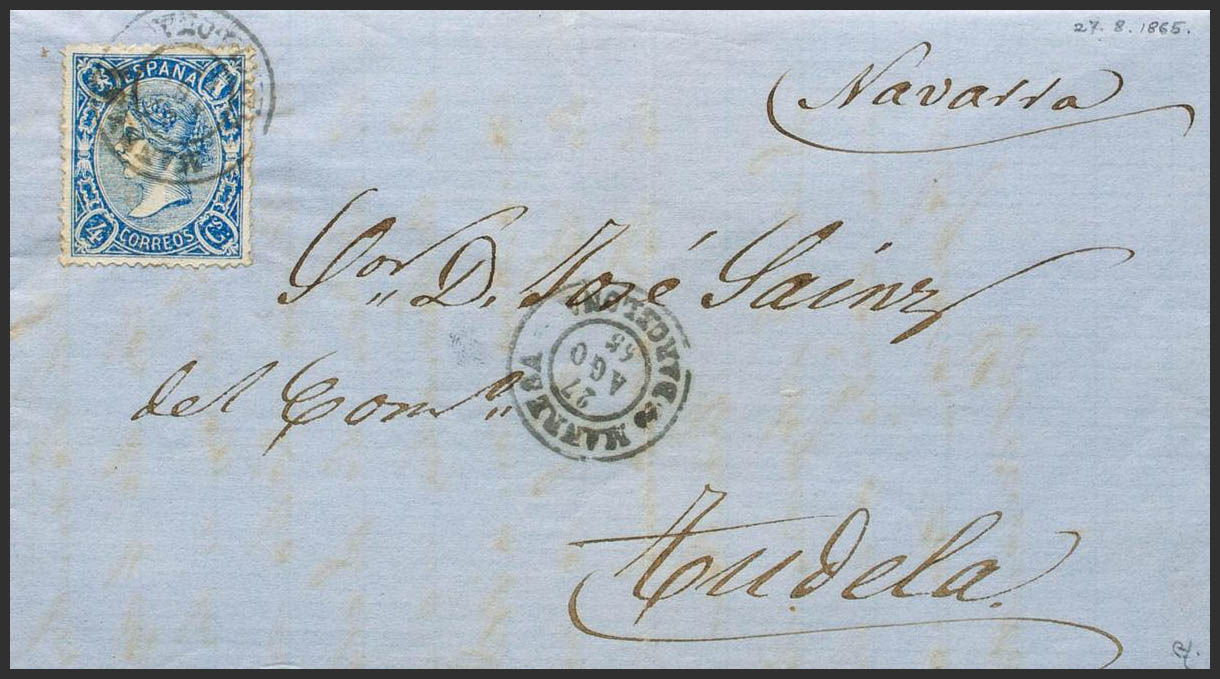 27. 8. 1865.
Navarra
ESPAÑA
4 CORREOS Cs.
Sor. D. José Sainz
del Como.
MANRESA BARCELONA
27
AGO
65
Tudela.